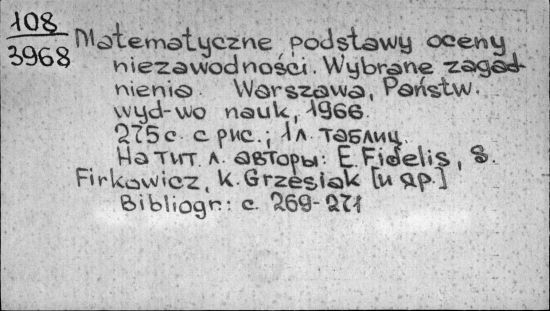 108
3968
Matematyczne podstawy oceny
niezawodności. Wybrane zagad-
nienia. Warszawa, Państw.
wyd-wo nauk, 1966.
275 с. с рис.; 1 л. таблиц.
На тит. л. авторы: E. Fidelis, S.
Firkowicz, K. Grzesiak [и др.]
Bibliogr.: с. 269-271